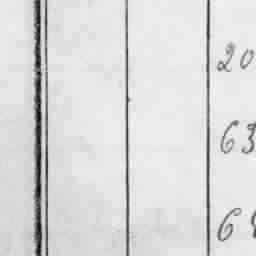 20
63